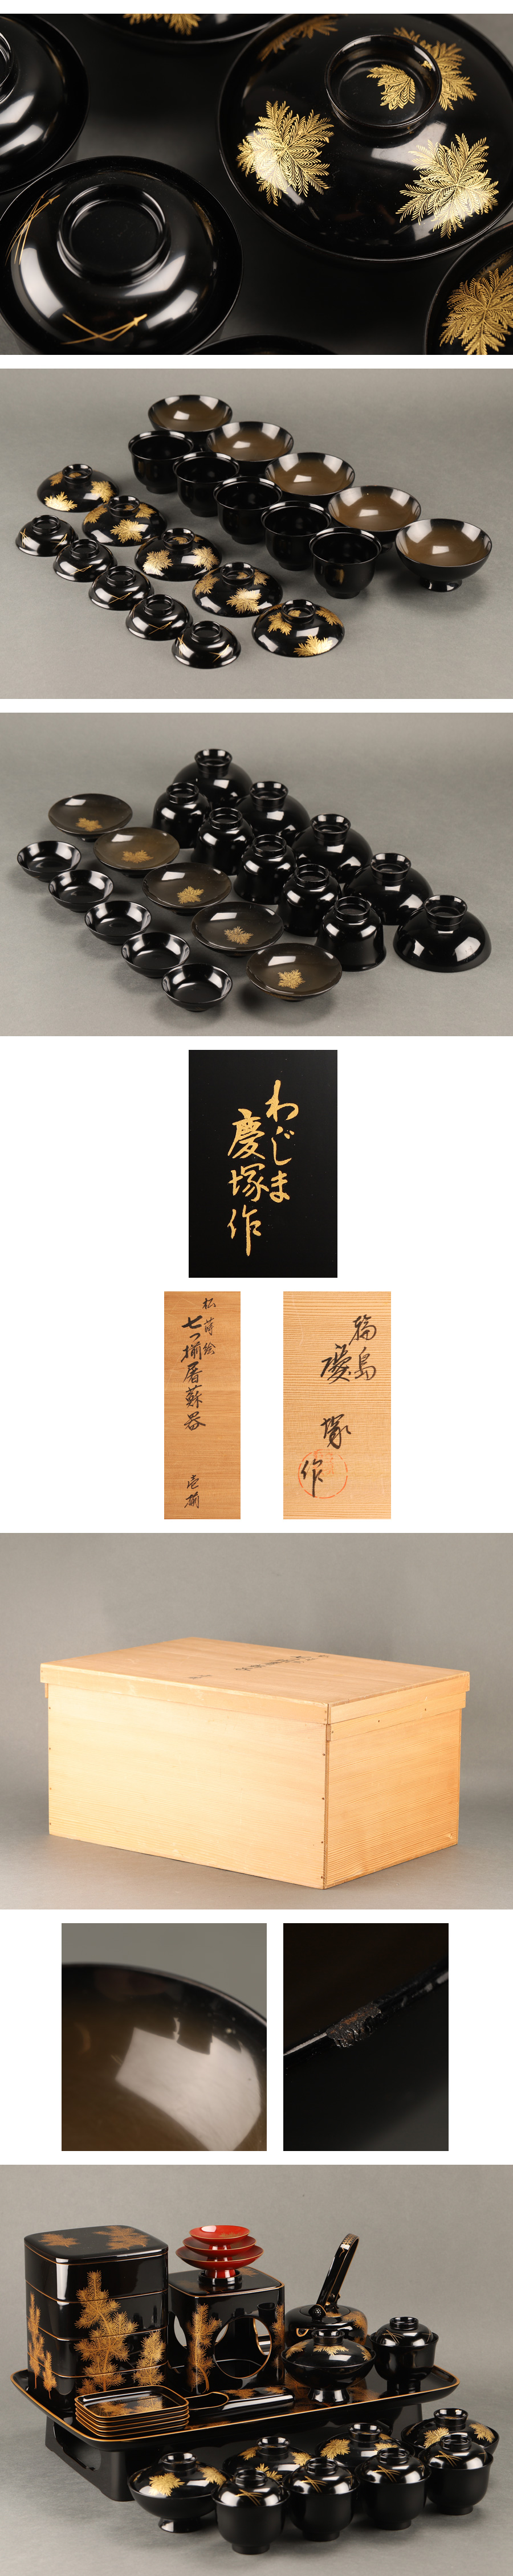 わじま
慶塚作
松蒔絵
七つ揃屠蘇器
壱揃
輪島
慶塚
作